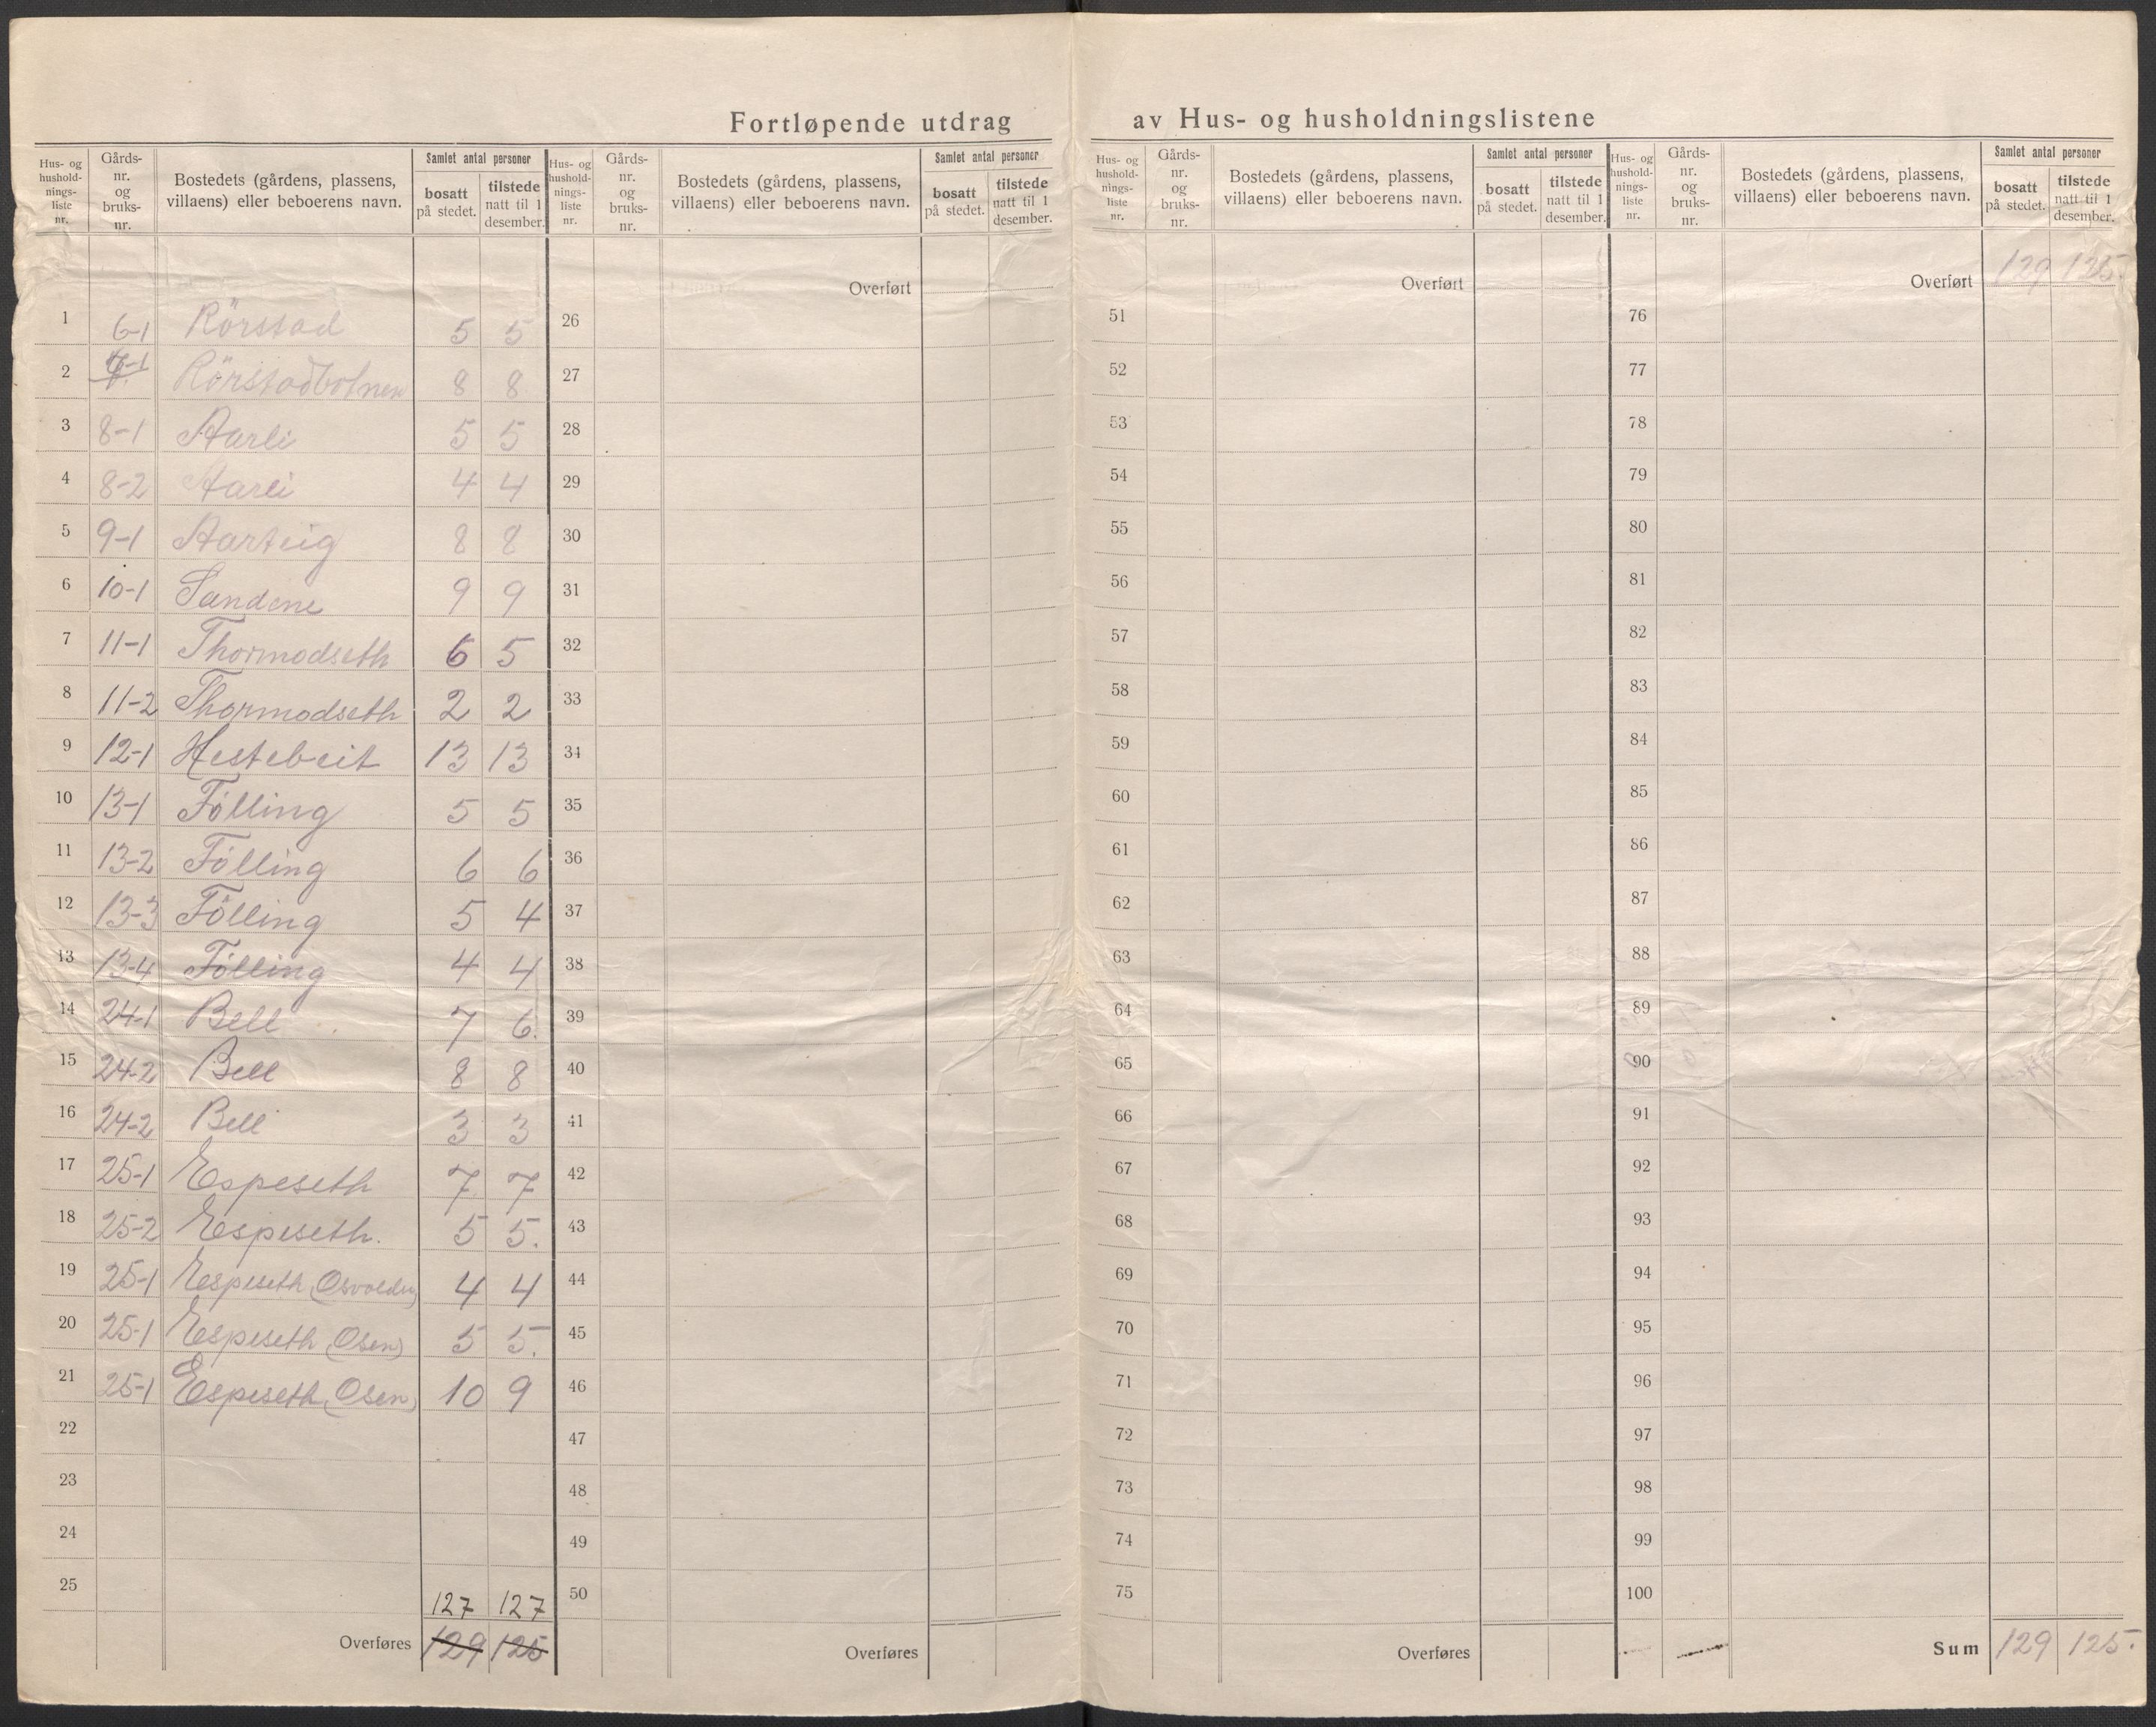 Fortløpende utdrag av Hus- og husholdningslistene
Hus- og husholdnings-liste nr. | Gårds-nr. og bruks-nr. | Bostedets (gårdens, plassens, villaens) eller beboerens navn. | Samlet antal personer | bosatt på stedet. | tilstede natt til 1 desember.
1 6-1 Rörstad 5 5
2 7-1 Rörstadbotnen 8 8
3 8-1 Aarli 5 5
4 8-2 Aarli 4 4
5 9-1 Aarteig 8 8
6 10-1 Sandene 9 9
7 11-1 Thormodseth 6 5
8 11-2 Thormodseth 2 2
9 12-1 Hestebeit 13 13
10 13-1 Fölling 5 5
11 13-2 Fölling 6 6
12 13-3 Fölling 5 4
13 13-4 Fölling 4 4
14 24-1 Bell 7 6.
15 24-2 Bell 8 8
16 24-2 Bell 3 3
17 25-1 Espeseth 7 7
18 25-2 Espeseth. 5 5.
19 25-1 Espeseth 4 4
20 25-1 Espeseth (Osen) 5 5.
21 25-1 Espeseth (Osen) 10 9
22
23
24
25
127 127
Overføres 129 125
Hus- og husholdnings-liste nr. | Gårds-nr. og bruks-nr. | Bostedets (gårdens, plassens, villaens) eller beboerens navn. | Samlet antal personer | bosatt på stedet. | tilstede natt til 1 desember.
Overført
26
27
28
29
30
31
32
33
34
35
36
37
38
39
40
41
42
43
44
45
46
47
48
49
50
Overføres
Hus- og husholdnings-liste nr. | Gårds-nr. og bruks-nr. | Bostedets (gårdens, plassens, villaens) eller beboerens navn. | Samlet antal personer | bosatt på stedet. | tilstede natt til 1 desember.
Overført
51
52
53
54
55
56
57
58
59
60
61
62
63
64
65
66
67
68
69
70
71
72
73
74
75
Overføres
Hus- og husholdnings-liste nr. | Gårds-nr. og bruks-nr. | Bostedets (gårdens, plassens, villaens) eller beboerens navn. | Samlet antal personer | bosatt på stedet. | tilstede natt til 1 desember.
Overført 129 125.
76
77
78
79
80
81
82
83
84
85
86
87
88
89
90
91
92
93
94
95
96
97
98
99
100
Sum 129 125.